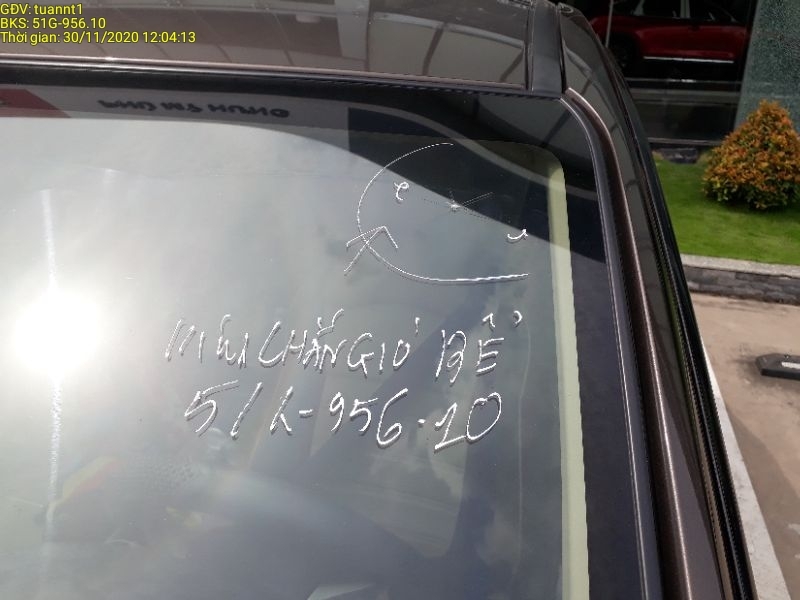 GĐV: tuannt1
BKS: 51G-956.10
Thời gian: 30/11/2020 12:04:13
KÍNH CHẮN GIÓ BỂ
51G-956.10